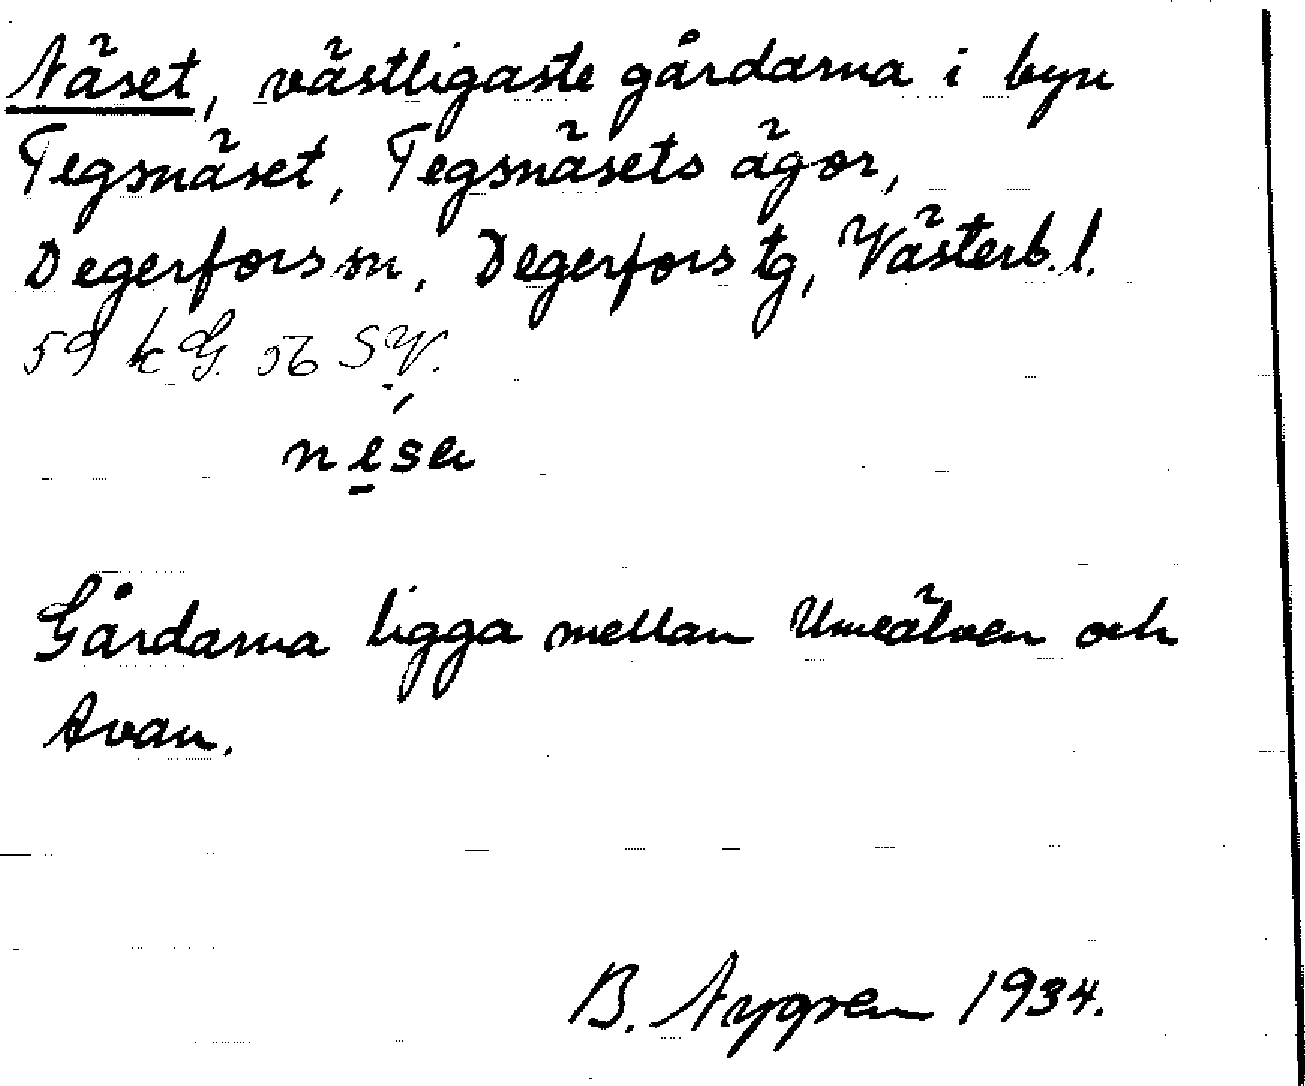 Näset, västligaste gårdarna i byn
Tegsnäset, Tegsnäsets ägor,
Degerfors sn, Degerfors tg, Västerb. l.
59 kG. 56 SV.
Gårdarna ligga mellan Umeälven och
Avan.
B. Nygren 1934.